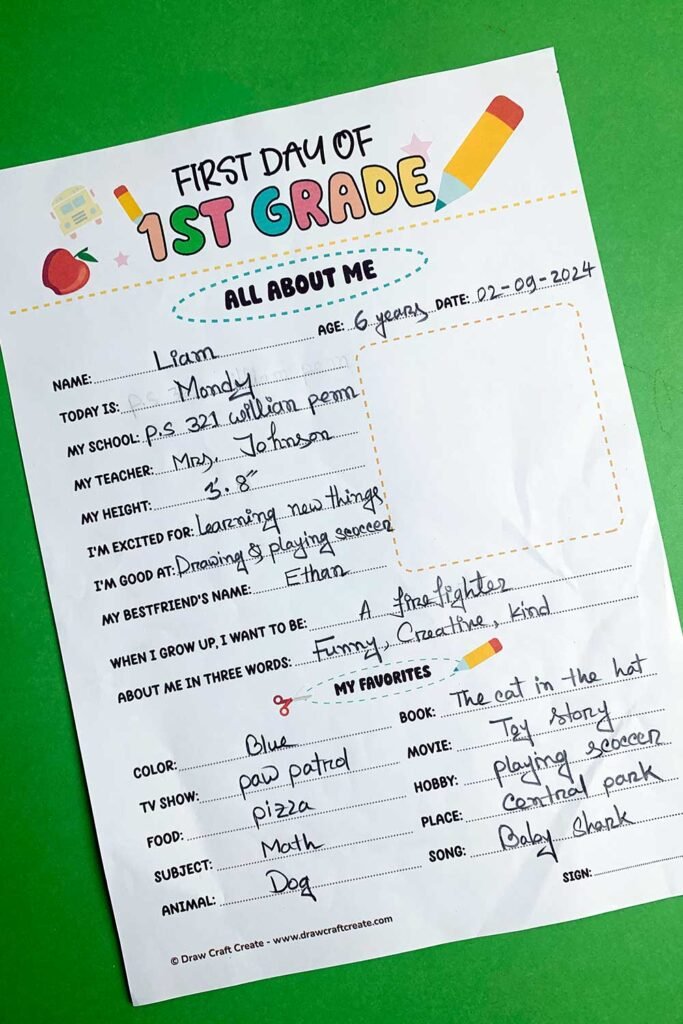 FIRST DAY OF
1ST GRADE
ALL ABOUT ME
NAME: Liam AGE: 6 years DATE: 02-09-2024
TODAY IS: Mondy
MY SCHOOL: p.s 321 willian penn
MY TEACHER: Mrs. Johnson
MY HEIGHT: 3'. 8"
I'M EXCITED FOR: Learning new things
I'M GOOD AT: Drawing & playing scoccer
MY BESTFRIEND'S NAME: Ethan
WHEN I GROW UP, I WANT TO BE: A firefighter
ABOUT ME IN THREE WORDS: Funny, Creative, kind
MY FAVORITES
COLOR: Blue BOOK: The cat in the hat
TV SHOW: paw patrol MOVIE: Toy story
FOOD: pizza HOBBY: playing scoccer
SUBJECT: Math PLACE: central park
ANIMAL: Dog SONG: Baby Shark
SIGN:
© Draw Craft Create - www.drawcraftcreate.com